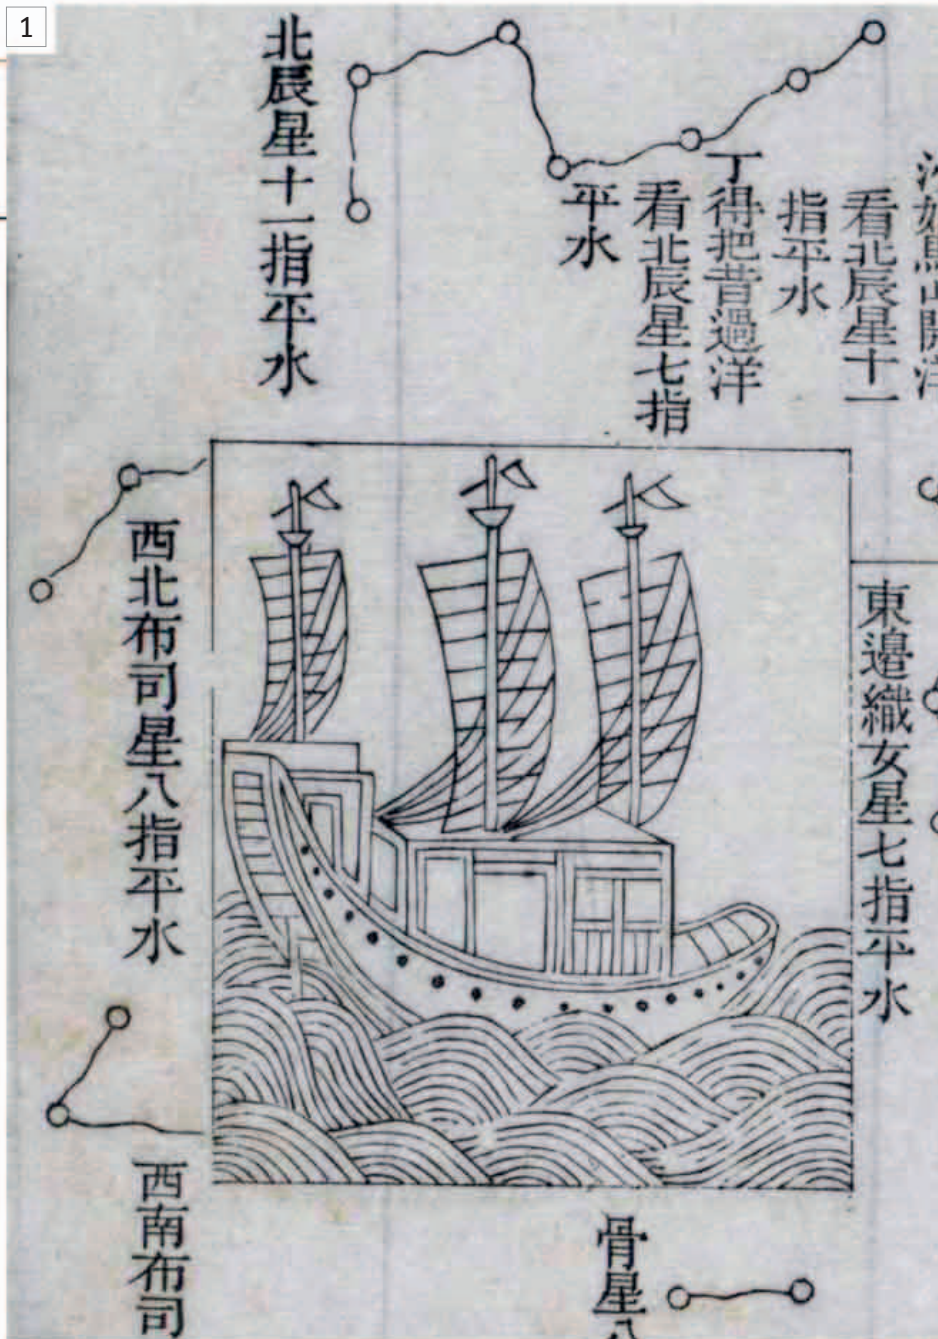 1
沙姑馬山開洋
看北辰星十一
指平水
丁得把昔過洋
看北辰星七指
平水
北辰星十一指平水
東邊織女星七指平水
西北布司星八指平水
骨星八
西南布司